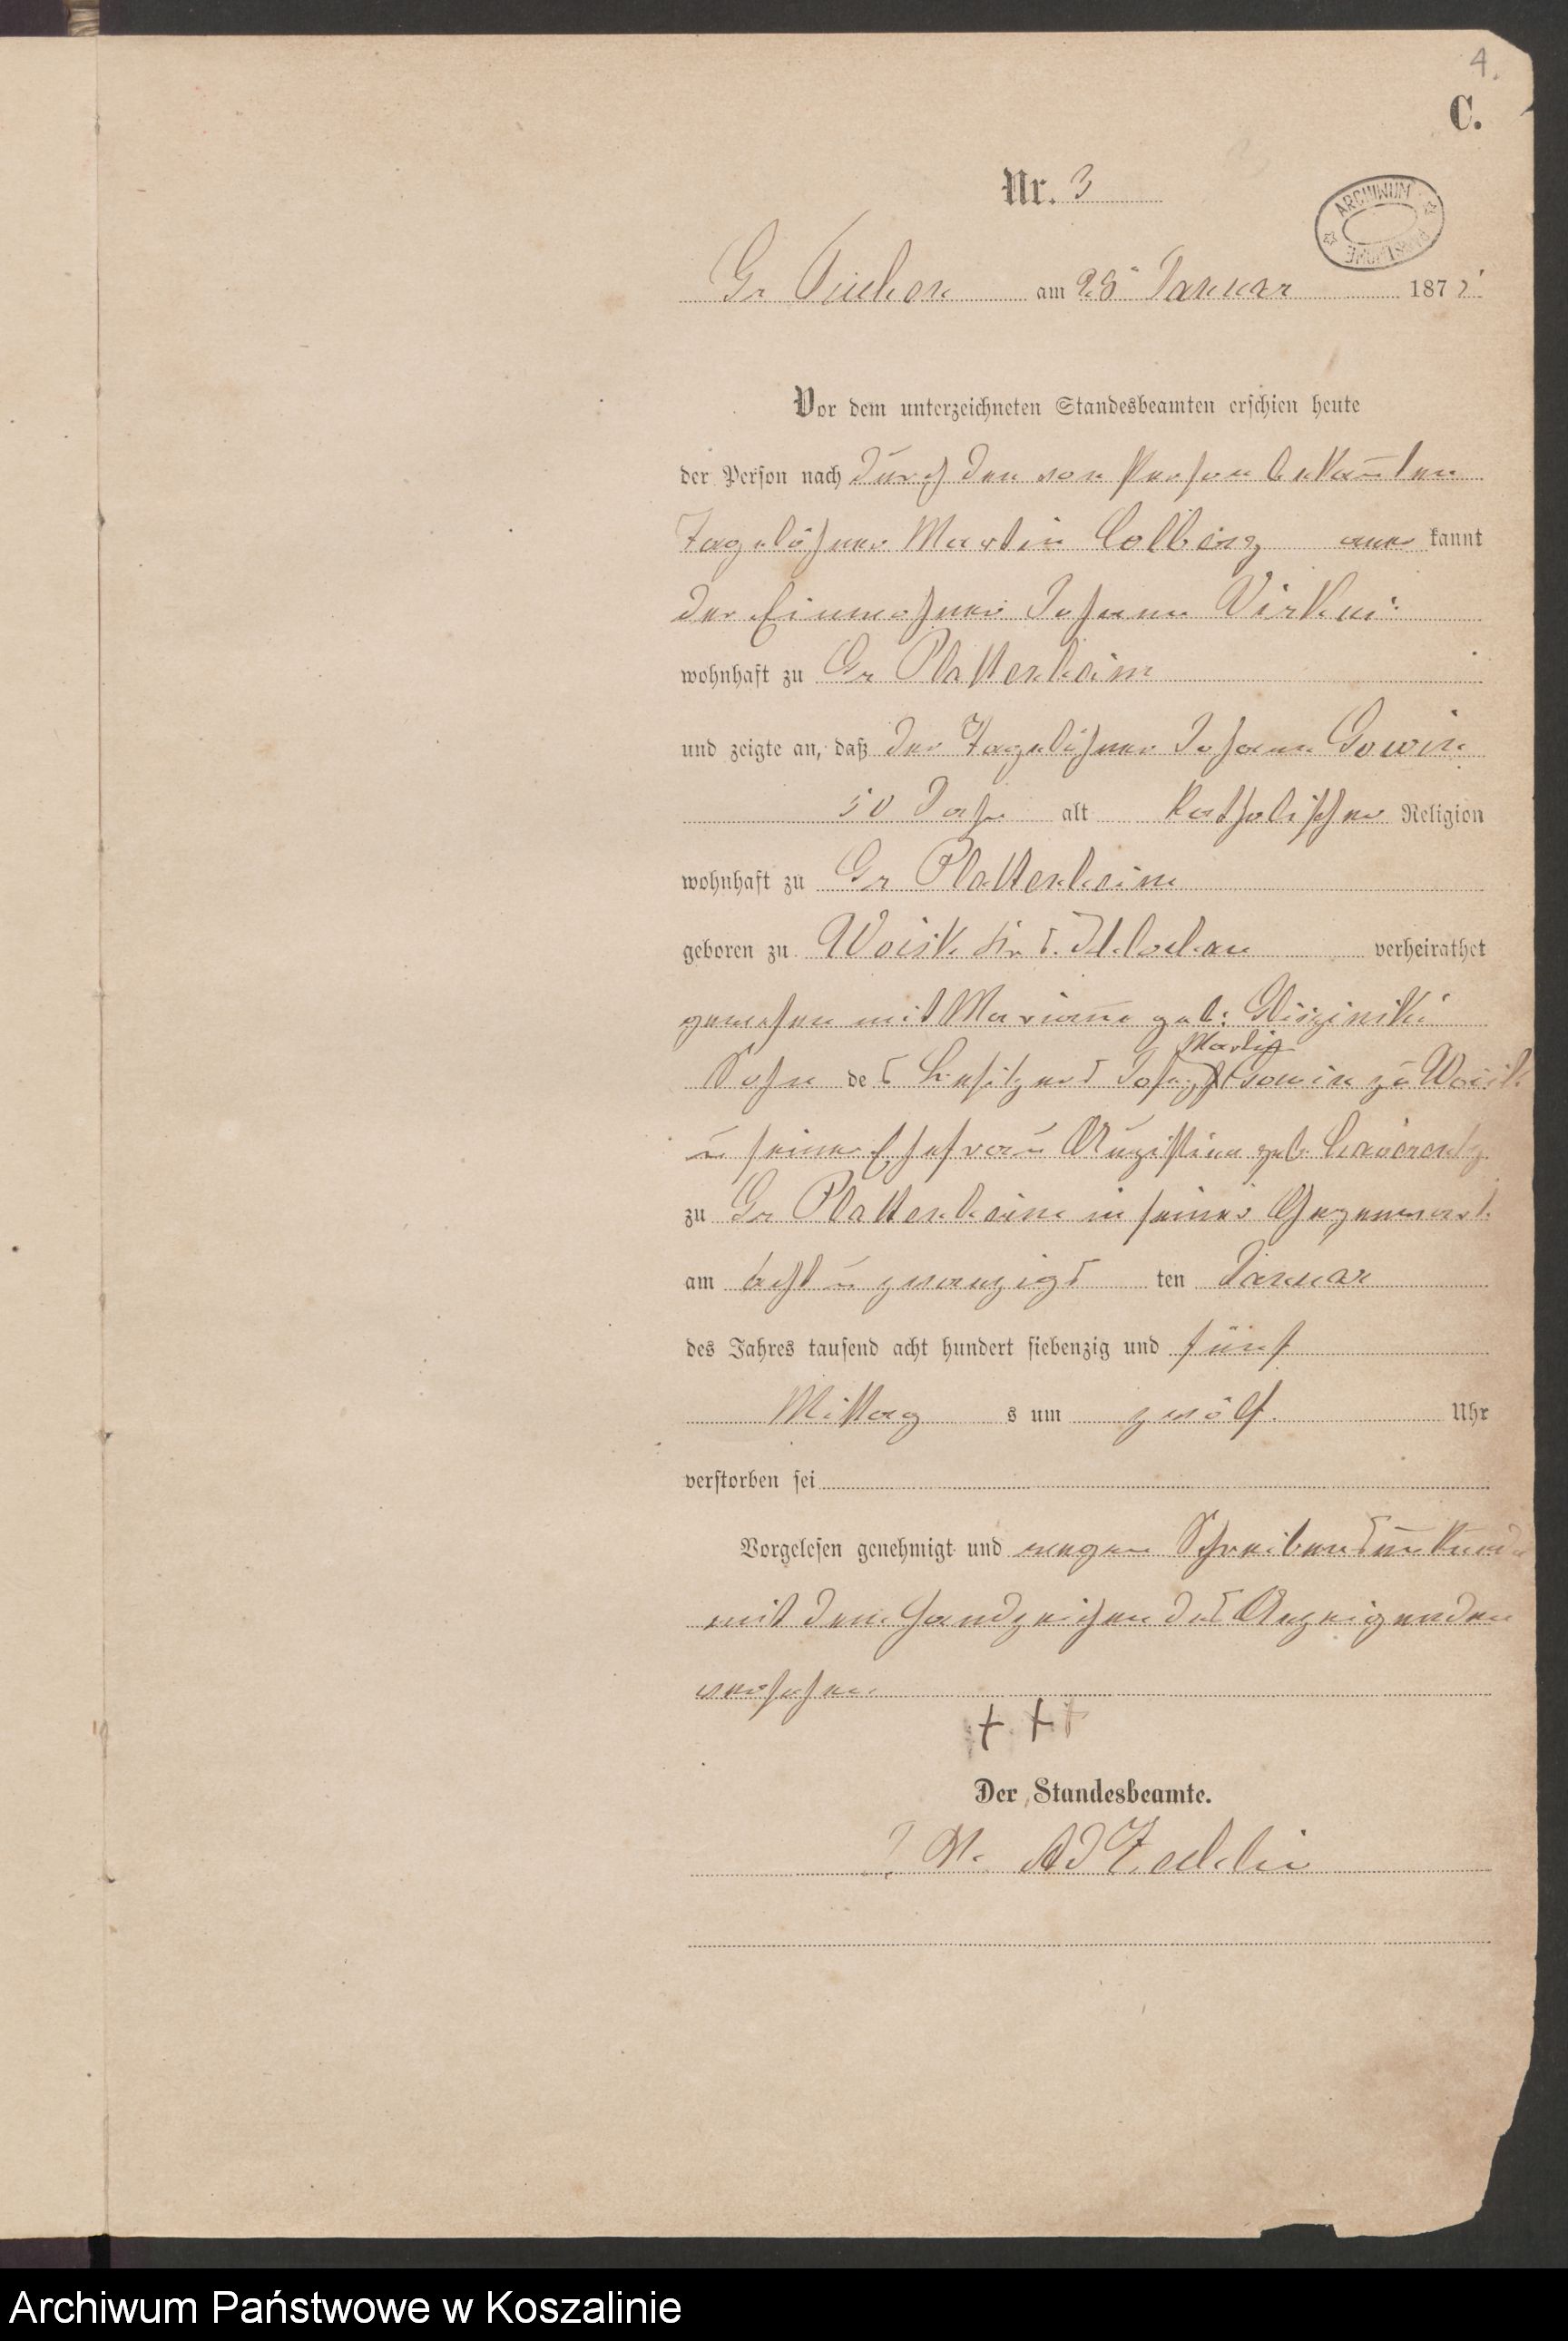 4.
C.
Nr. 3
ARCHIWUM
Gr Tuchen am 28 Januar 1875
Vor dem unterzeichneten Standesbeamten erschien heute
der Person nach durch den von Person bekan̄ten
Tagelöhner Martin Collberg aner kannt
der Einwohner Johann
wohnhaft zu Gr Plattenheim
und zeigte an, daß der Tagelöhner Johann Gowin
50 Jahr alt katholischer Religion
wohnhaft zu Gr Plattenheim
geboren zu verheirathet
gewesen mit Marian̄e geb:
Martin
Sohn des Besitzers Gowin zu
u seiner Ehefrau geb.
zu Gr Plattenheim in seiner Gegenwart
am acht u zwanzigs ten Januar
des Jahres tausend acht hundert siebenzig und fünf
Mittag s um zwölf Uhr
verstorben sei
Vorgelesen genehmigt und wegen Schreibensunkunde
mit dem Handzeichen des Anzeigenden
versehen
+ + +
Der Standesbeamte.
Archiwum Państwowe w Koszalinie